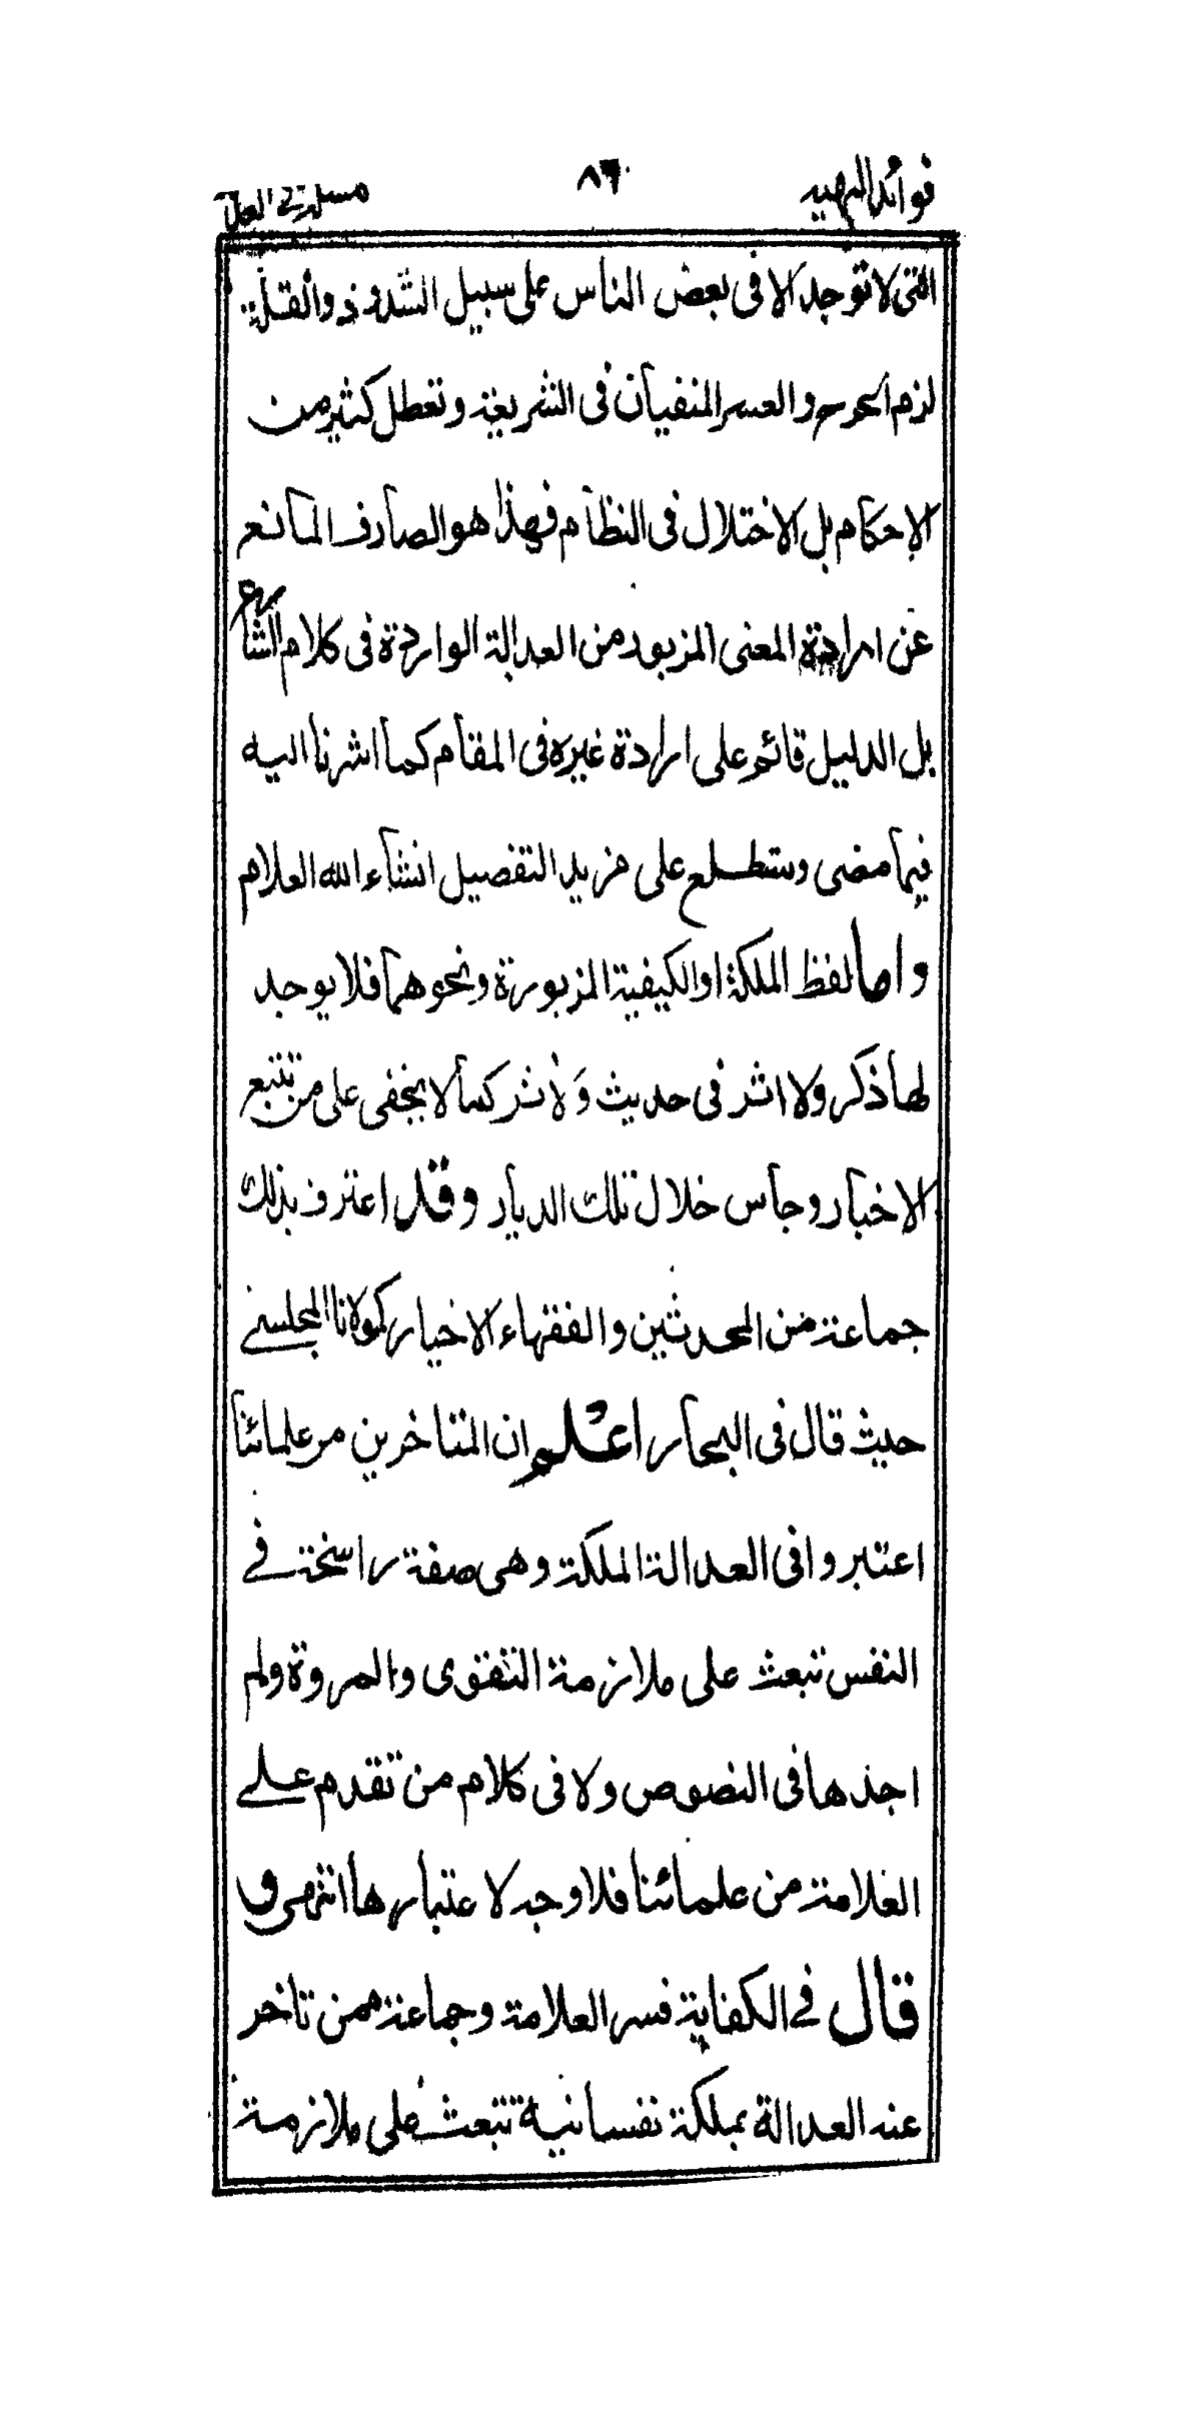 فوائد البهيه ٨٦ مسئلة فى العدالة
التى لا توجد الا فى بعض الناس على سبيل الشذوذ والقلة
لزم الحرج والعسر المنفيان فى الشريعة وتعطل كثير من
الاحكام بل الاختلال فى النظام فهذا هو الصارف المانع
عن ارادة المعنى المزبور من العدالة الواردة فى كلام الشارع
بل الدليل قائم على ارادة غيره فى المقام كما اشرنا اليه
فيما مضى وستطلع على مزيد التفصيل انشاء الله العلام
واما لفظ الملكة او الكيفية المزبورة ونحوهما فلا يوجد
لها ذكر ولا اثر فى حديث ولا اثر كما لا يخفى على من تتبع
الاخبار وجاس خلال تلك الديار وقد اعترف بذلك
جماعة من المحدثين والفقهاء الاخيار كمولانا المجلسى
حيث قال فى البحار اعلم ان المتاخرين من علمائنا
اعتبروا فى العدالة الملكة وهى صفة راسخة فى
النفس تبعث على ملازمة التقوى والمروة ولم
اجدها فى النصوص ولا فى كلام من تقدم على
العلامة من علمائنا فلا وجه لاعتبارها انتهى و
قال فى الكفاية فسر العلامة وجماعة ممن تاخر
عنه العدالة بملكة نفسانية تبعث على ملازمة